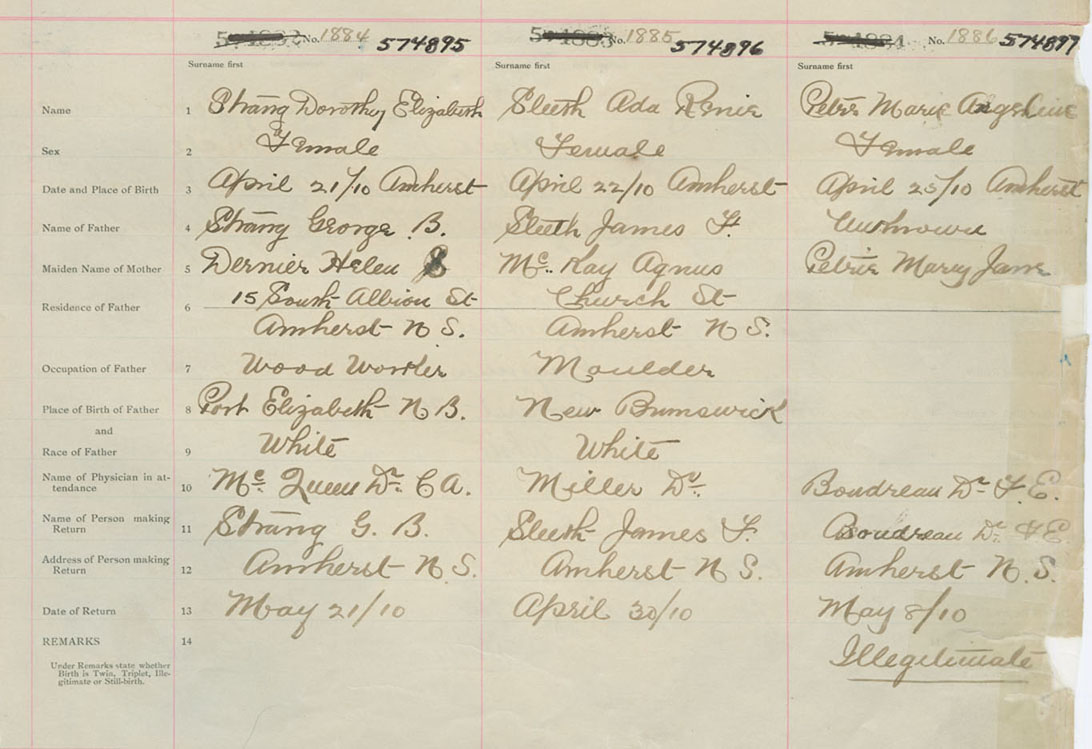 No. 1884 574895
No. 1885 574896
No. 1886 574897
Surname first Surname first Surname first
Name 1 Strang Dorothy Elizabeth Sleeth Ada Renie Petrie Marie Angeline
Sex 2 Female Female Female
Date and Place of Birth 3 April 21/10 Amherst April 22/10 Amherst April 25/10 Amherst
Name of Father 4 Strang George B. Sleeth James F. Unknown
Maiden Name of Mother 5 Dernier Helen Mc. Kay Agnus Petrie Mary Jane
15 South Albion St Church St
Residence of Father 6
Amherst N S. Amherst N S.
Occupation of Father 7 Wood Worker Moulder
Place of Birth of Father 8 Port Elizabeth N B. New Brunswick
and
Race of Father 9 White White
Name of Physician in at-
tendance 10 Mc. Queen Dr. C A. Miller Dr. Boudreau Dr F. E.
Name of Person making
Return 11 Strang G. B. Sleeth James F. Boudreau Dr. F E
Address of Person making
Return 12 Amherst N. S. Amherst N S. Amherst N. S.
Date of Return 13 May 21/10 April 30/10 May 8/10
REMARKS 14
Illegitimate
Under Remarks state whether
Birth is Twin, Triplet, Ille-
gitimate or Still-birth.